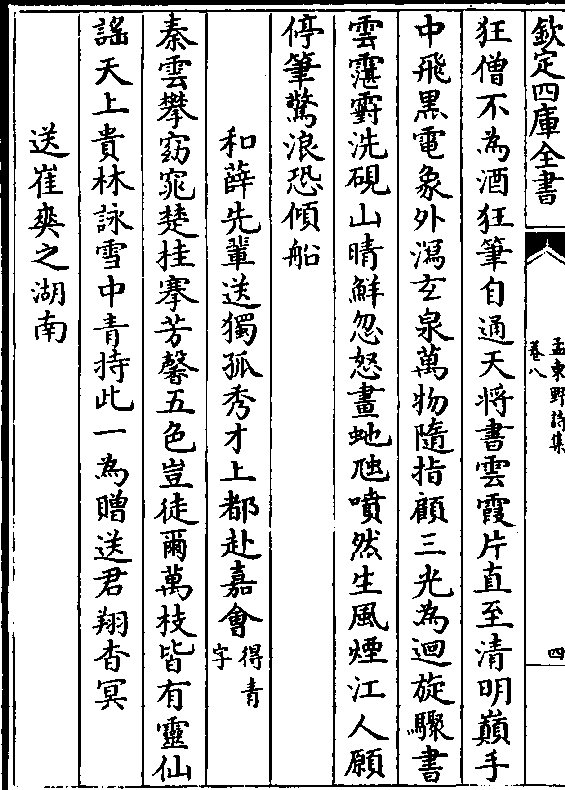 欽定四庫全書
孟東野詩集
卷八
四
狂僧不為酒狂筆自通天將書雲霞片直至清明巔手
中飛黑電象外瀉玄泉萬物隨指顧三光為迴旋驟書
雲霮䨴洗硯山晴鮮忽怒畫虵虺噴然生風煙江人願
停筆驚浪恐傾船
和薛先輩送獨孤秀才上都赴嘉會得青字
秦雲攀窈窕楚桂搴芳馨五色豈徒爾萬枝皆有靈仙
謡天上貴林詠雪中青持此一為贈送君翔杳冥
送崔爽之湖南